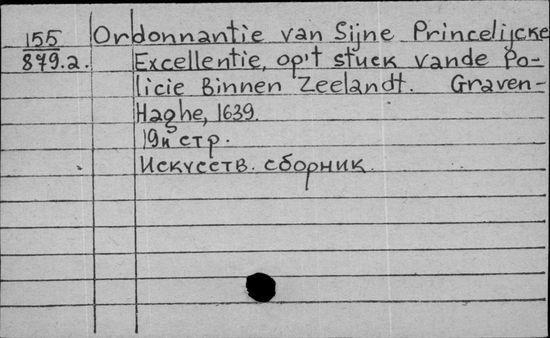 155 Ordonnantie van Sijne Princelijcke
879.2. Excellentie, op't stuck vande Po-
licie Binnen Zeelandt. Graven-
Haghe, 1639.
стр.
Искусств. сборник.